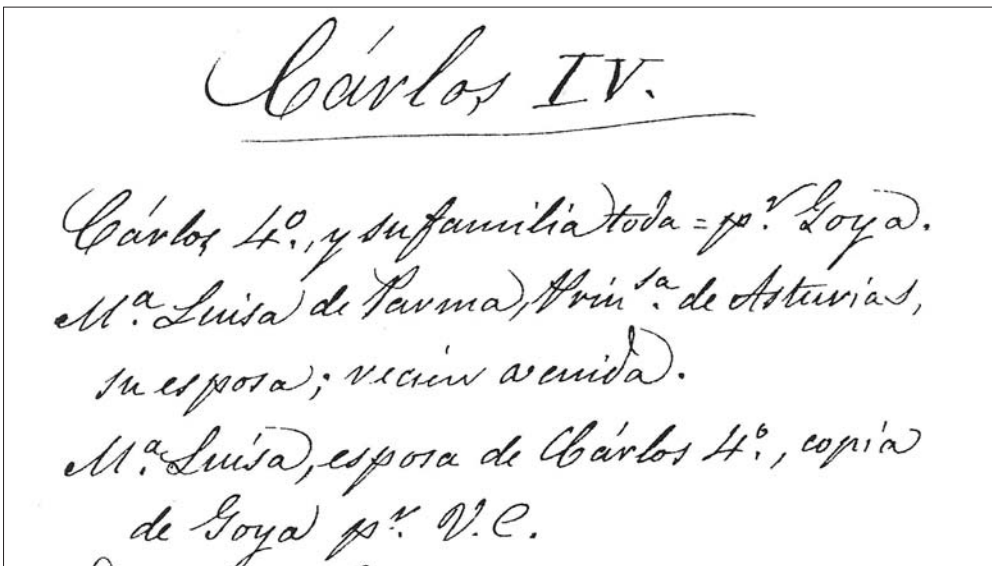 Cárlos IV.
Cárlos 4º., y su familia toda = pʳ. Goya.
Mª. Luisa de Parma, Prinˢᵃ. de Asturias,
su esposa; recien avenida.
Mª. Luisa, esposa de Cárlos 4º., copia
de Goya pʳ. V. C.